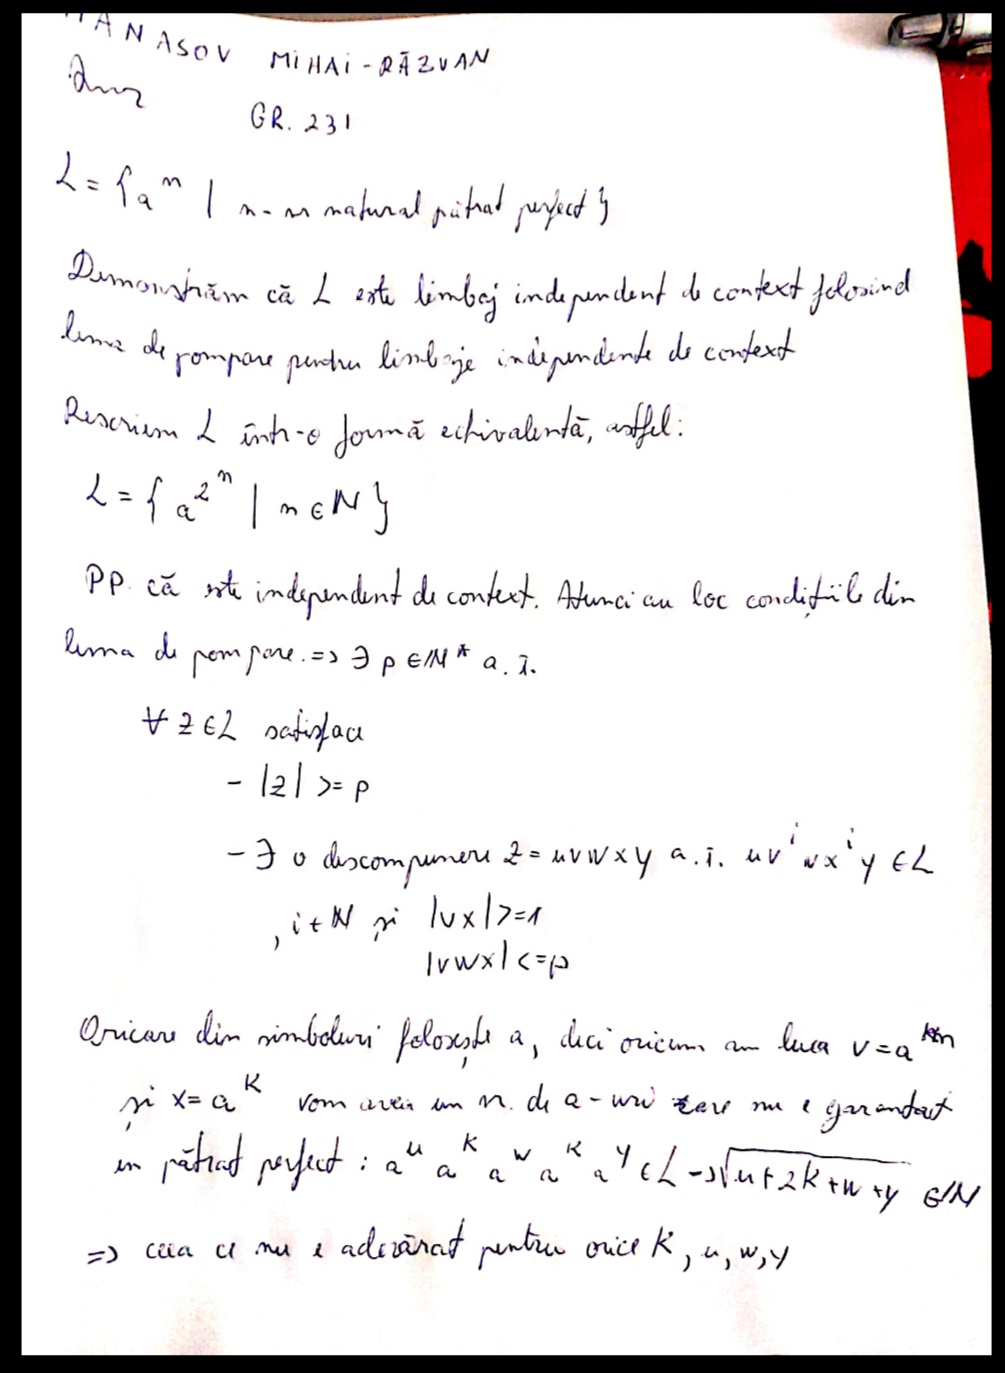 MANASOV MIHAI-RĂZVAN
GR. 231
L = { a^n | n - nr natural pătrat perfect }
Demonstrăm că L este limbaj independent de context folosind
lema de pompare pentru limbaje independente de context
Rescriem L într-o formă echivalentă, astfel:
L = { a^2^n | n ∈ N }
PP. că este independent de context. Atunci au loc condițiile din
lema de pompare. => ∃ p ∈ N* a. î.
∀ z ∈ L satisface
- |z| >= p
- ∃ o descompunere z = uvwxy a. î. uv^i wx^i y ∈ L
, i ∈ N și |vx| >= 1
|vwx| <= p
Oricare din simboluri folosește a, deci oricum am lua v = a
și x = a^K vom avea un nr. de a-uri care nu e garantat
un pătrat perfect : a^u a^K a^w a^K a^y ∈ L -> √u + 2K + w + y ∈ N
=> ceea ce nu e adevărat pentru orice K, u, w, y